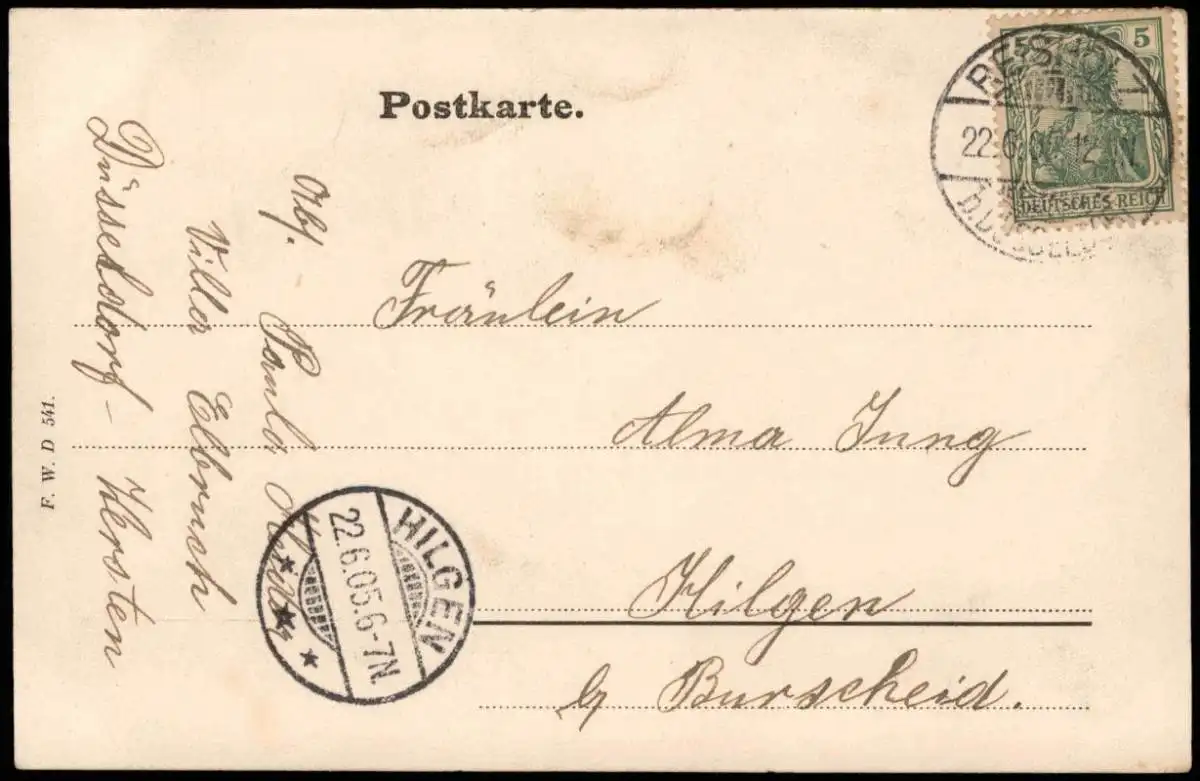 Postkarte.
5 5
DEUTSCHES REICH
22.6.0 12 N
Fräulein
Alma Jung
Hilgen
b/ Burscheid.
Abs. Paula
Villa Elbruch
Düsseldorf - Wersten
HILGEN
22.6.05.6-7N.
F. W. D 541.